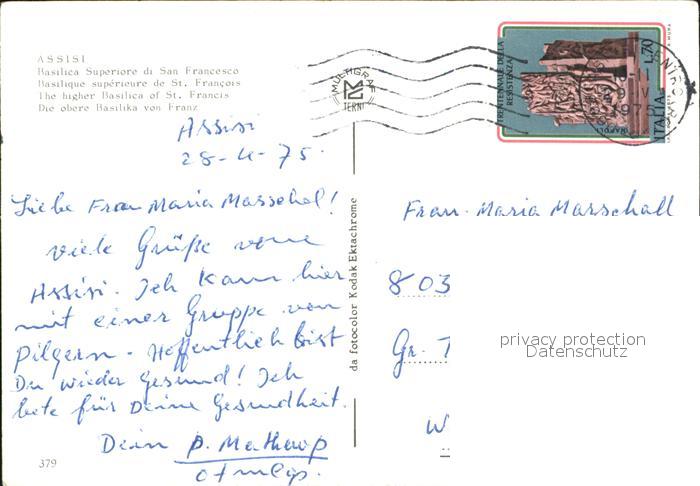 ASSISI
Basilica Superiore di San Francesco
Basilique supérieure de St. François
The higher Basilica of St. Francis
Die obere Basilika von Franz
MULTIGRAF
TERNI
TRENTENNALE DELLA
RESISTENZA
L.70
ITALIA
NAPOLI
Assisi
28-4-75.
Liebe Frau Maria Marschal!
viele Grüße vone
Assisi. Ich kam hier
mit einer Gruppe von
Pilgern. Hoffentlich bist
Du wieder gesund! Ich
bete für Deine Gesundheit.
Dein P.
379
da fotocolor Kodak Ektachrome
Frau Maria Marschall
803
Gr. T
W
privacy protection
Datenschutz